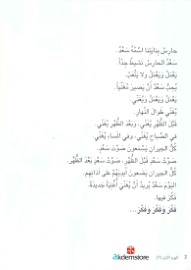 حارِسُ بِنايَتِنا اسْمُهُ سَعْدٌ.
سَعْدٌ الحارِسُ نَشيطٌ جِدّاً.
يَعْمَلُ وَيَعْمَلُ وَلا يَتْعَبُ.
يُحِبُّ سَعْدٌ أَنْ يَصيرَ مُغَنِّياً.
يَعْمَلُ وَيَعْمَلُ وَيُغَنّي.
يُغَنّي طَوالَ النَّهارِ.
قَبْلَ الظُّهْرِ يُغَنّي، وَبَعْدَ الظُّهْرِ يُغَنّي.
في الصَّباحِ يُغَنّي، وَفي المَساءِ يُغَنّي.
كُلُّ الجيرانِ يَسْمَعونَ صَوْتَ سَعْدٍ.
صَوْتُ سَعْدٍ قَبْلَ الظُّهْرِ، صَوْتُ سَعْدٍ بَعْدَ الظُّهْرِ
كُلُّ الجيرانِ يَضَعونَ أَيْدِيَهُمْ عَلى آذانِهِم.
اليَوْمَ سَعْدٌ يُريدُ أَنْ يُغَنّي أُغْنِيَةً جَديدَةً.
فَكَّرَ فيها.
فَكَّرَ وَفَكَّرَ وَفَكَّرَ...
akdemstore
2